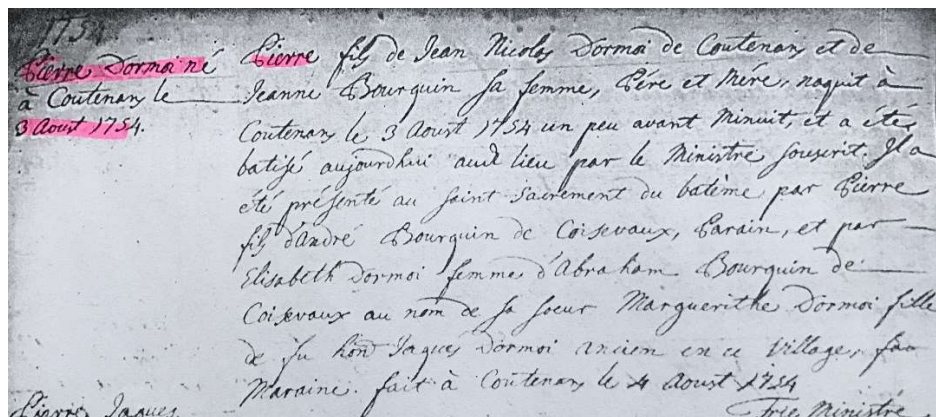 1754.
Pierre Dormoi né
à Coutenans le
3 Aoust 1754.
Pierre fils de Jean Nicolas Dormoi de Coutenans et de
Jeanne Bourquin sa femme, Pére et Mére, naquit à
Coutenans le 3 Aoust 1754 un peu avant Minuit, et a été
batisé aujourdhui aud lieu par le Ministre souscrit. Il a
été présenté au saint Sacrement du batême par Pierre
fils d'André Bourquin de Coisevaux, Parain, et par
Elisabeth Dormoi femme d'Abraham Bourquin de
Coisevaux au nom de sa soeur Marguerithe Dormoi fille
de fu hon Jaques Dormoi ancien en ce Village, sa
Maraine. fait à Coutenans le 4 Aoust 1754
Pierre Jaques
Ministre